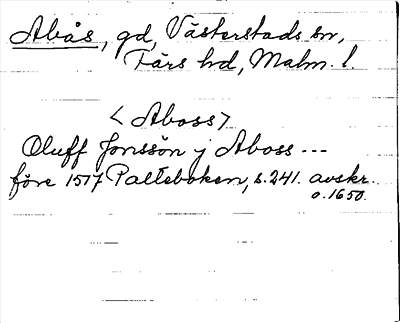 Abås, gd, Västerstads sn,
Färs hd, Malm. l.
< Aboss >
Oluff Jonssön j Aboss ---
före 1517 Palteboken, s. 241. avskr.
o. 1650.